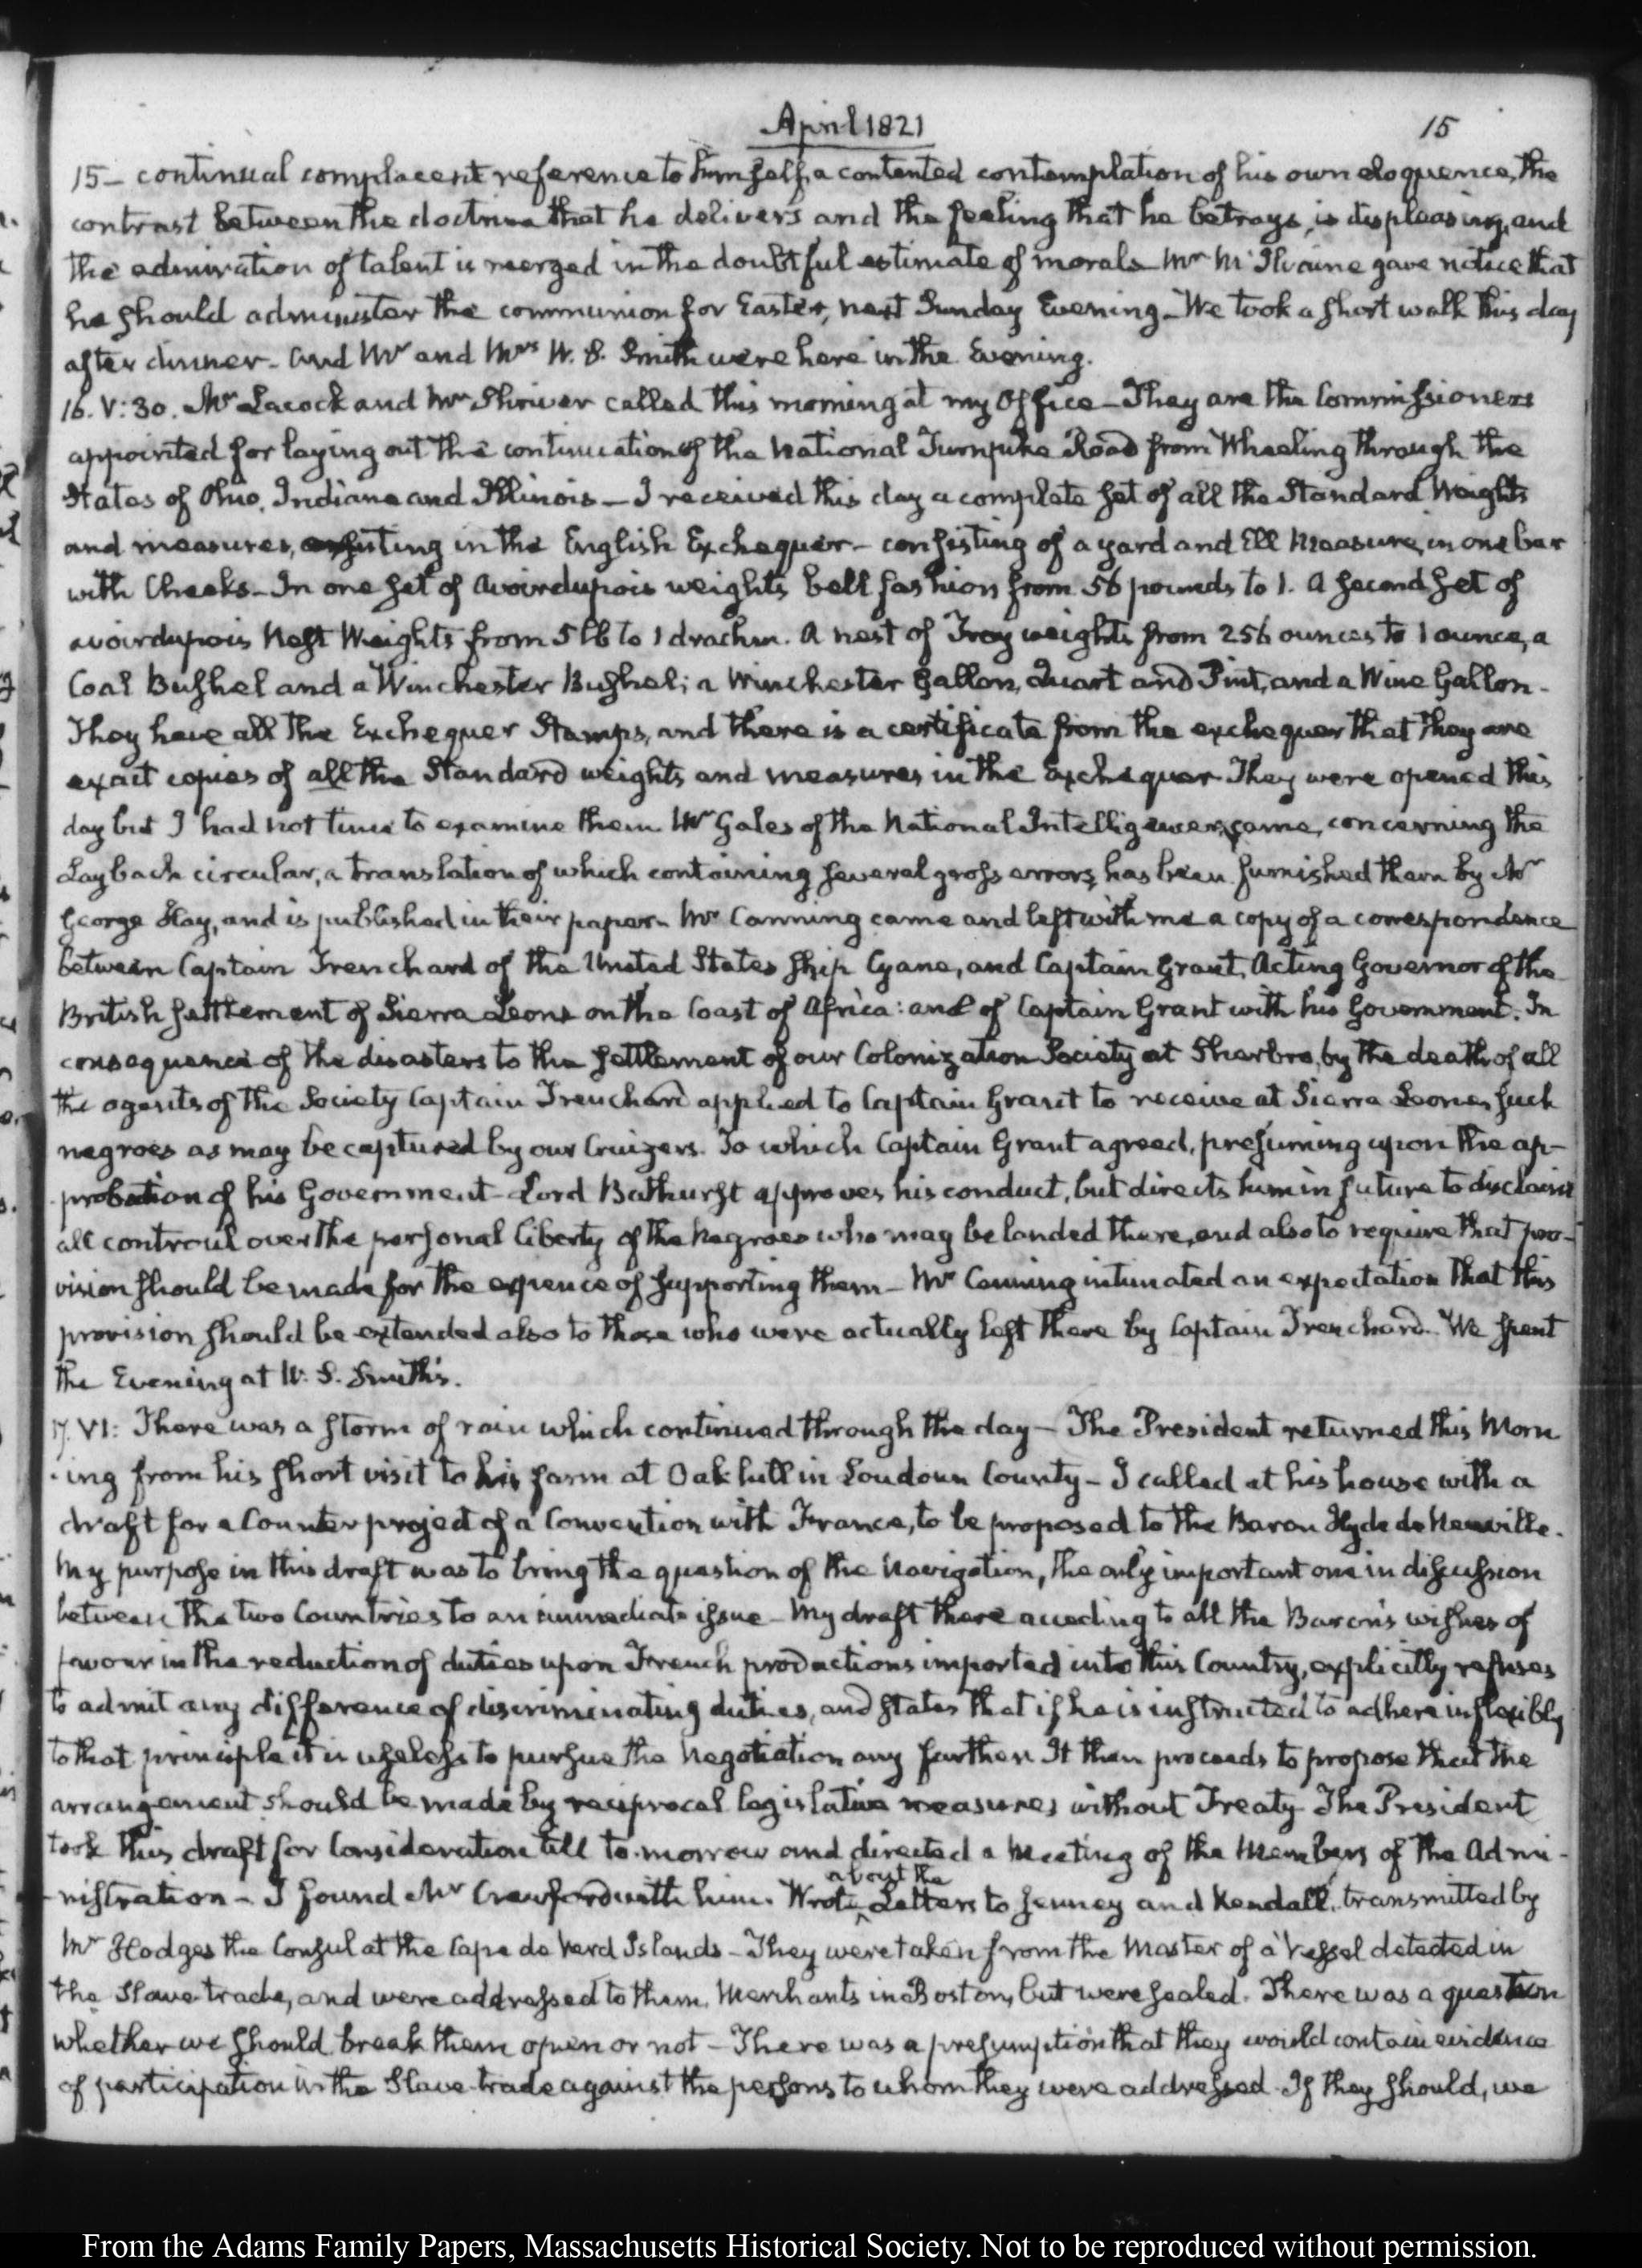 April 1821
15
15— continual complacent reference to himself, a contented contemplation of his own eloquence, the
contrast between the doctrine that he delivers and the feeling that he betrays, is displeasing, and
the admiration of talent is merged in the doubtful estimate of morals Mr. McIlvaine gave notice that
he should administer the communion for Easter, next Sunday Evening— We took a short walk this day
after dinner— and Mr and Mrs W. S. Smith were here in the Evening.
16. V:30. Mr Lacock and Mr Shriver called this morning at my Office— They are the Commissioners
appointed for laying out the continuation of the National Turnpike Road from Wheeling through the
States of Ohio, Indiana and Illinois— I received this day a complete set of all the Standard Weights
and measures, existing in the English Exchequer— consisting of a yard and Ell Measure, in one bar
with Cheeks— In one set of Avoirdupois weights bell fashion from 56 pounds to 1. A second set of
avoirdupois Nest Weights from 5 lb to 1 drachm. A nest of Troy weights from 256 ounces to 1 ounce, a
Coal Bushel and a Winchester Bushel; a Winchester Gallon, Quart and Pint, and a Wine Gallon—
They have all the Exchequer Stamps, and there is a certificate from the exchequer that they are
exact copies of all the Standard weights and measures in the Exchequer They were opened this
day but I had not time to examine them Mr Gales of the National Intelligencer, came, concerning the
Laybach circular, a translation of which containing several gross errors, has been furnished them by Mr
George Hay, and is published in their paper— Mr Canning came and left with me a copy of a correspondence
between Captain Trenchard of the United States ship Cyane, and Captain Grant, Acting Governor of the
British settlement of Sierra Leone on the Coast of Africa: and of Captain Grant with his Government. In
consequence of the disasters to the settlement of our Colonization Society at Sherbro, by the death of all
the agents of the Society Captain Trenchard applied to Captain Grant to receive at Sierra Leone, such
negroes as may be captured by our Cruizers. To which Captain Grant agreed, presuming upon the ap-
probation of his Government— Lord Bathurst approves his conduct, but directs him in future to disclaim
all controul over the personal liberty of the Negroes who may be landed there, and also to require that pro-
vision should be made for the expence of supporting them— Mr Canning intimated an expectation that this
provision should be extended also to those who were actually left there by Captain Trenchard. We spent
the Evening at W. S. Smith's.
17. VI: There was a storm of rain which continued through the day— The President returned this Morn
-ing from his short visit to his farm at Oak hill in Loudoun County— I called at his house with a
draft for a Counter project of a Convention with France, to be proposed to the Baron Hyde de Neuville.
My purpose in this draft was to bring the question of the Navigation, the only important one in discussion
between the two Countries to an immediate issue— My draft there acceding to all the Baron's wishes of
favour in the reduction of duties upon French productions imported into this Country, explicitly refuses
to admit any difference of discriminating duties, and states that if he is instructed to adhere inflexibly
to that principle it is useless to pursue the Negotiation any further It then proceeds to propose that the
arrangement should be made by reciprocal legislative measures without Treaty— The President
took this draft for Consideration till to-morrow and directed a Meeting of the Members of the Admi-
nistration— I found Mr Crawford with him. Wrote about the Letters to Jenney and Kendall, transmitted by
Mr Hodges the Consul at the Cape de Verd Islands— They were taken from the Master of a Vessel detected in
the Slave trade, and were addressed to them, Merchants in Boston, but were sealed. There was a question
whether we should break them open or not— There was a presumption that they would contain evidence
of participation in the Slave-trade against the persons to whom they were addressed. If they should, we
From the Adams Family Papers, Massachusetts Historical Society. Not to be reproduced without permission.